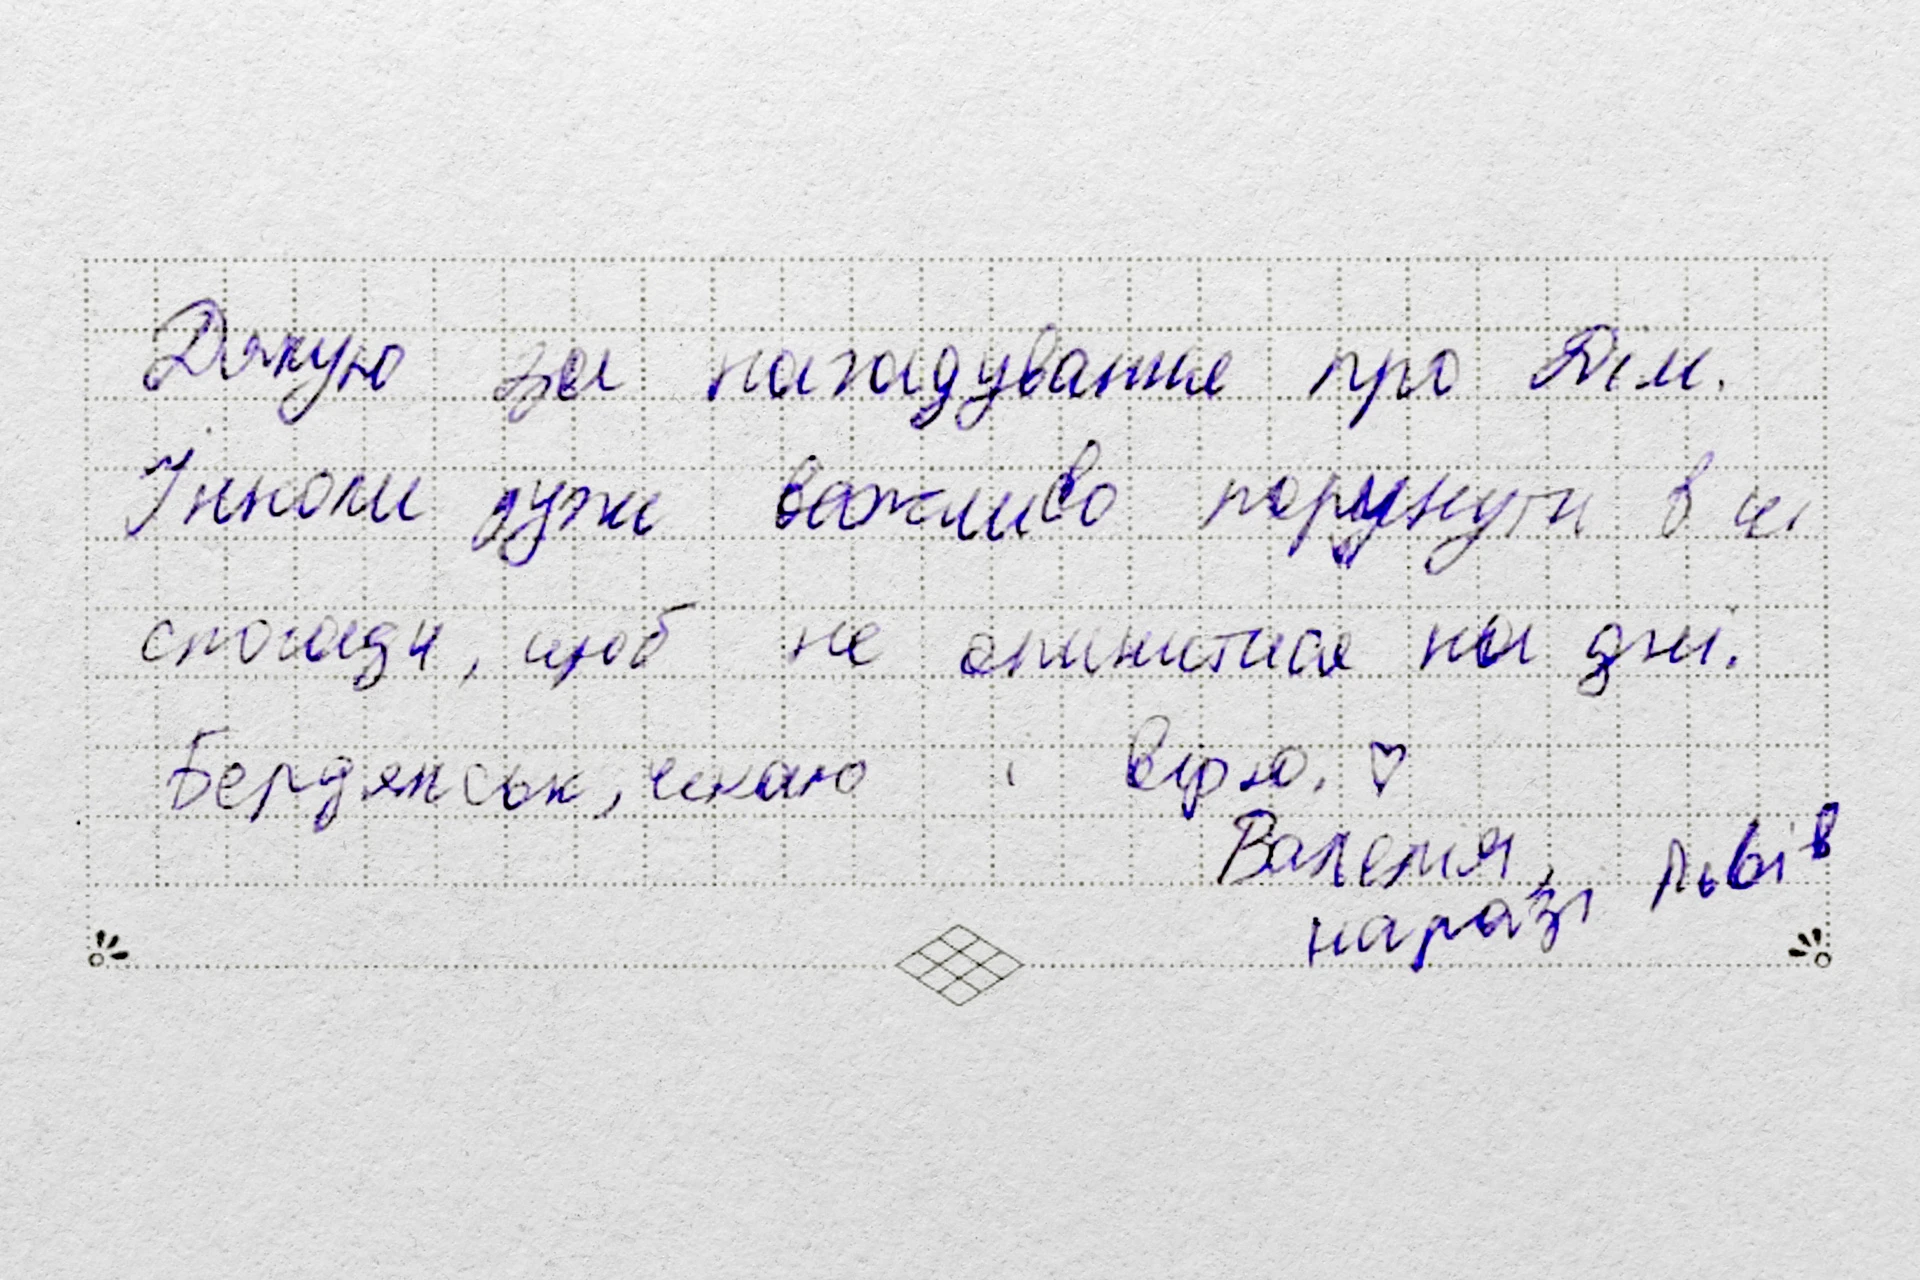 Дякую за нагадування про Дім.
Інколи дуже важливо поринути в ці
спогади, щоб не опинитися на дні.
Бердянськ, чекаю і вірю. ♡
Валенія,
наразі Львів